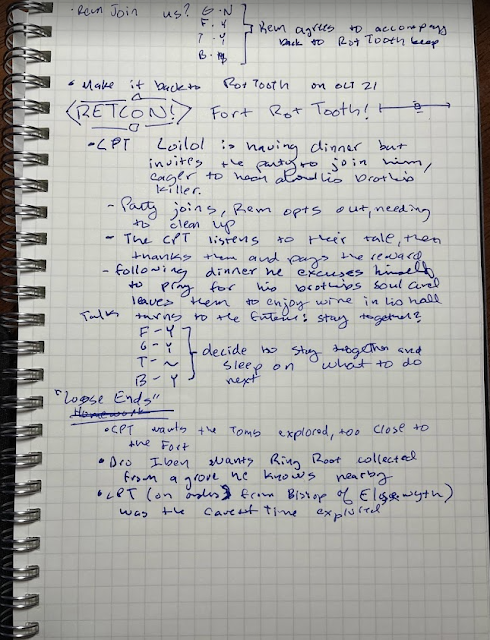 • Rem Join us? G-N
F-Y
T-Y
B-N
Rem agrees to accompany
back to Rot Tooth keep
• Make it back to Rot Tooth on Oct 21
<RETCON!> Fort Rot Tooth!
• CPT Loilol is having dinner but
invites the party to join him,
eager to hear about his brothers
killer.
- Party joins, Rem opts out, needing
to clean up
- The CPT listens to their tale, then
thanks them and pays the reward
- following dinner he excuses himself
to pray for his brothers soul and
leaves them to enjoy wine in his hall
Talk turns to the future: stay together?
F-Y
G-Y
T-~
B-Y
decide to stay together and
sleep on what to do
next
"Loose Ends"
Homework
• CPT wants the Tomb explored, too close to
the Fort
• Dro Iben wants Ring Root collected
from a grove he knows nearby
• CPT (on orders from Bishop of)
was the explored